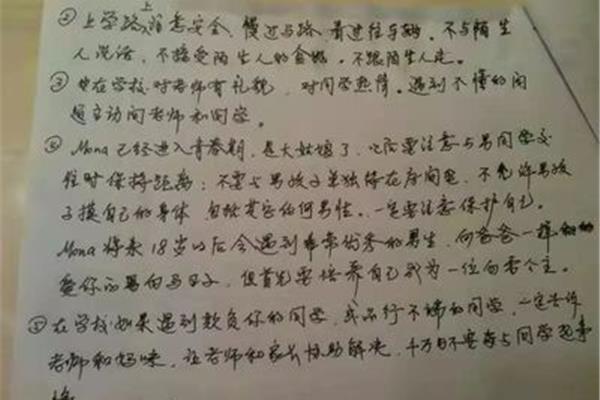 ② 上学路上注意安全，慢过马路，看过往车辆，不与陌生
人说话，不接受陌生人的食物，不跟陌生人走。
③ 在学校对老师有礼貌，对同学热情。遇到不懂的问
题主动问老师和同学。
④ Mona已经进入青春期，是大姑娘了，以后要注意与男同学交
往时保持距离：不要与男孩子单独待在房间里，不允许男孩
子摸自己的身体，包括其它任何男性。一定要注意保护自己。
Mona将来18岁以后会遇到非常优秀的男生，向爸爸一样
爱你的男白马王子，但首先要培养自己成为一位白雪公主。
⑤ 在学校如果遇到欺负你的同学，或品行不端的同学，一定告诉
老师和妈咪，让老师和家长协助解决，千万不要与同学起事